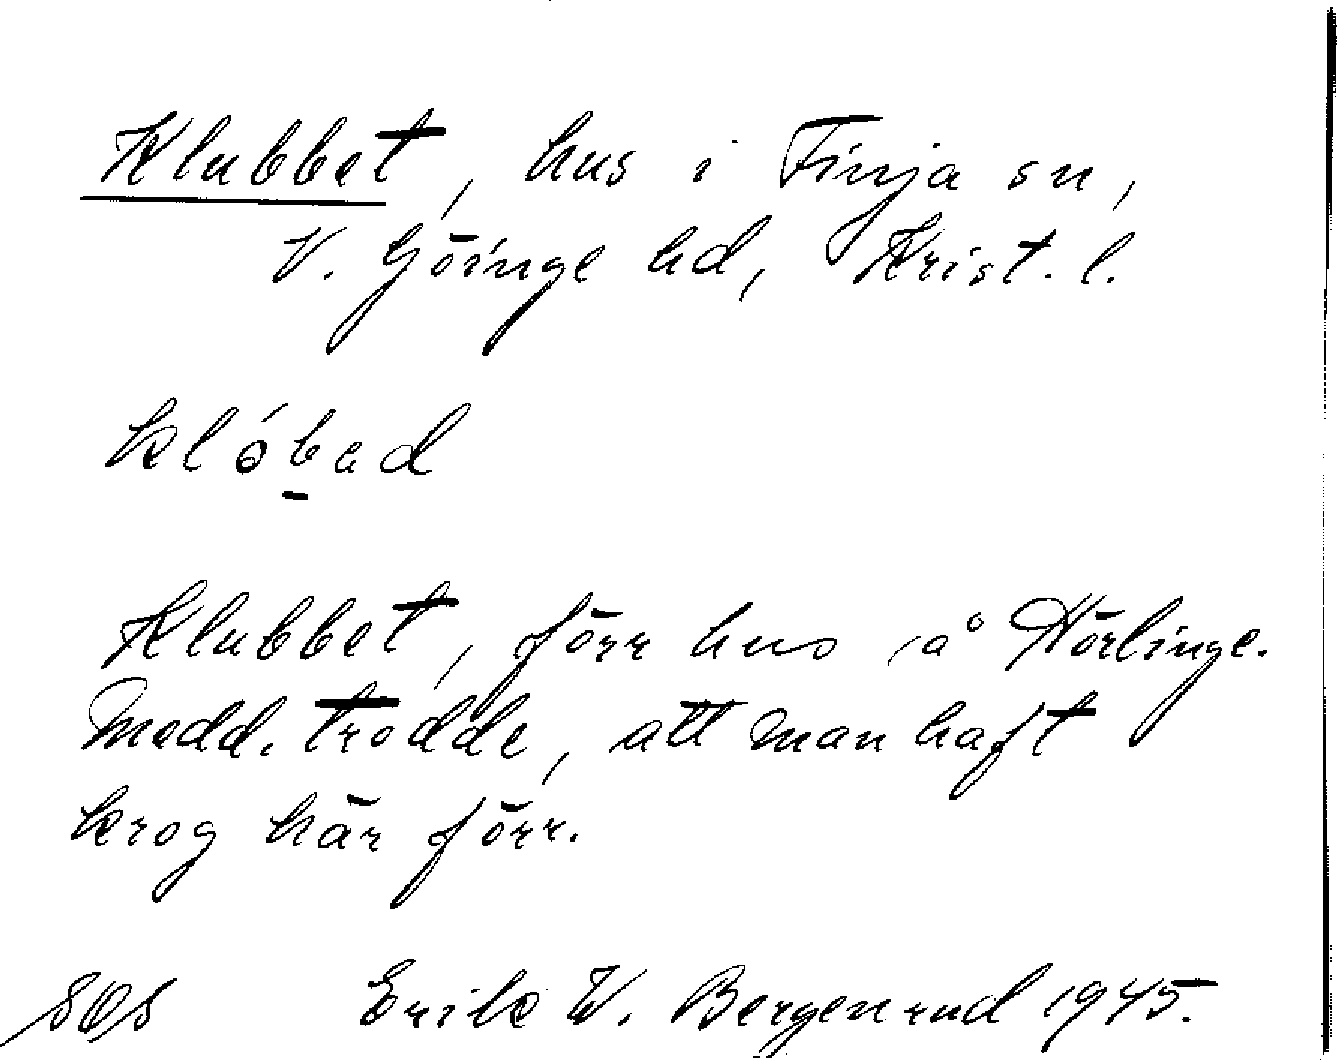 Klubbet, hus i Finja sn,
V. Göinge hd, Krist. l.
klóbad
Klubbet, förr hus å Hörlinge.
Medd. trodde, att man haft
krog här förr.
Erik W. Bergenrud 1945.